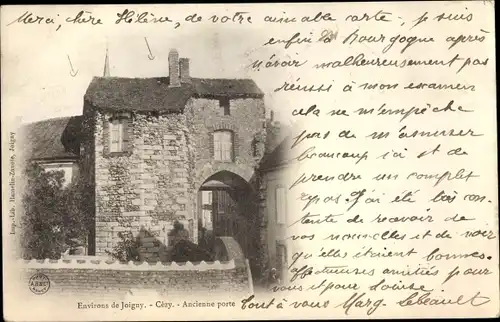 Merci, chère Hélène, de votre aimable carte, je suis
enfin la Bourgogne après
n'avoir malheureusement pas
réussi à mon examen
cela ne m'empêche
pas de m'amuser
beaucoup ici et de
prendre un complet
repos. J'ai été bien con-
tente de recevoir de
vos nouvelles et de voir
qu'elles étaient bonnes.
Affectueuses amitiés pour
vous et pour Louise
Tout à vous Marg. Lebeault
Imp.-Lib. Hamelle-Zenotte, Joigny
Environs de Joigny. - Cézy. - Ancienne porte